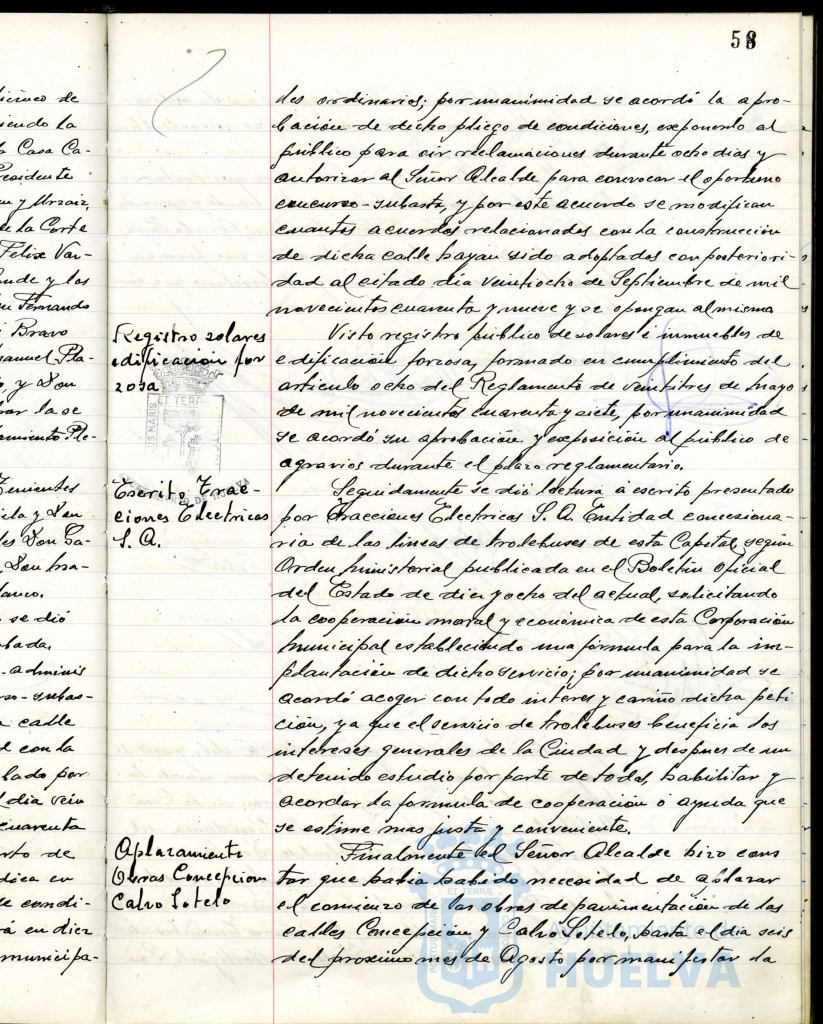 58
iciuco de
iendo la
Casa Ca-
residente
y Urzaiz,
de la Corte
Felix Var-
nde y los
Fernando
Bravo
anuel Pla-
y Don
rar la se
amiento Ple-
Tenientes
ila y Don
les Don Ga-
Don Ma-
lanco.
se dió
obada.
adminis
so-subas-
calle
d con la
lado por
dia vein
cuarenta
rto de
dica en
e condi-
rá en diez
municipa-
les ordinarios; por unanimidad se acordó la apro-
bación de dicho pliego de condiciones, exponerlo al
público para oir reclamaciones durante ocho dias y
autorizar al Señor Alcalde para convocar el oportuno
concurso-subasta, y por este acuerdo se modifican
cuantos acuerdos relacionados con la construccion
de dicha calle hayan sido adoptados con posteriori-
dad al citado dia veintiocho de Septiembre de mil
novecientos cuarenta y nueve y se opongan al mismo
Registro solares
edificación for
zosa
Visto registro público de solares é inmuebles de
edificación forzosa, formado en cumplimiento del
articulo ocho del Reglamento de veintitres de mayo
de mil novecientos cuarenta y siete, por unanimidad
se acordó su aprobación y exposición al público de
agravios durante el plazo reglamentario.
Escrito Trac-
ciones Electricas
S. A.
Seguidamente se dió lectura á escrito presentado
por Tracciones Electricas S. A. Entidad concesiona-
ria de las lineas de trolebuses de esta Capital, según
Orden ministerial publicada en el Boletin Oficial
del Estado de diez y ocho del actual, solicitando
la cooperación moral y económica de esta Corporación
municipal estableciendo una fórmula para la im-
plantación de dicho servicio; por unanimidad se
acordó acoger con todo interes y cariño dicha peti
ción, ya que el servicio de trolebuses beneficia los
intereses generales de la Ciudad y despues de un
detenido estudio por parte de todos, habilitar y
acordar la formula de cooperación ó ayuda que
se estime mas justa y conveniente.
Aplazamiento
Obras Concepcion
Calvo Sotelo
Finalmente el Señor Alcalde hizo cons
tar que habia habido necesidad de aplazar
el comienzo de las obras de pavimentación de las
calles Concepción y Calvo Sotelo, hasta el dia seis
del proximo mes de Agosto por manifestar la
Ayuntamiento de
HUELVA